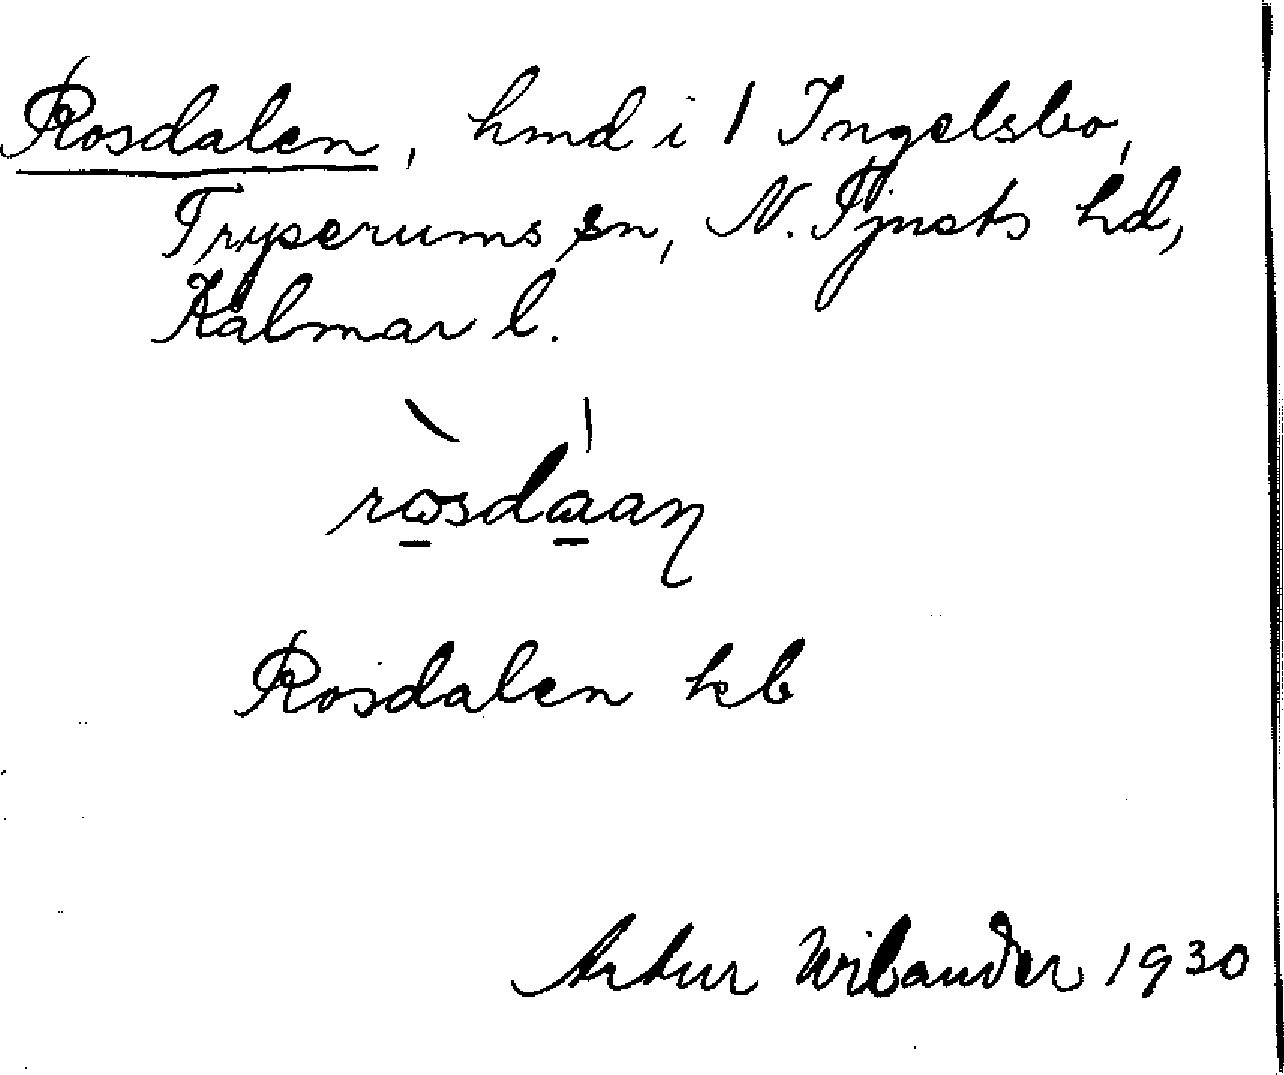 Rosdalen, hmd i 1 Ingelsbo,
Tryserums sn, N. Tjusts hd,
Kalmar l.
ròsdáaṇ
Rosdalen kb
Artur Wilander 1930